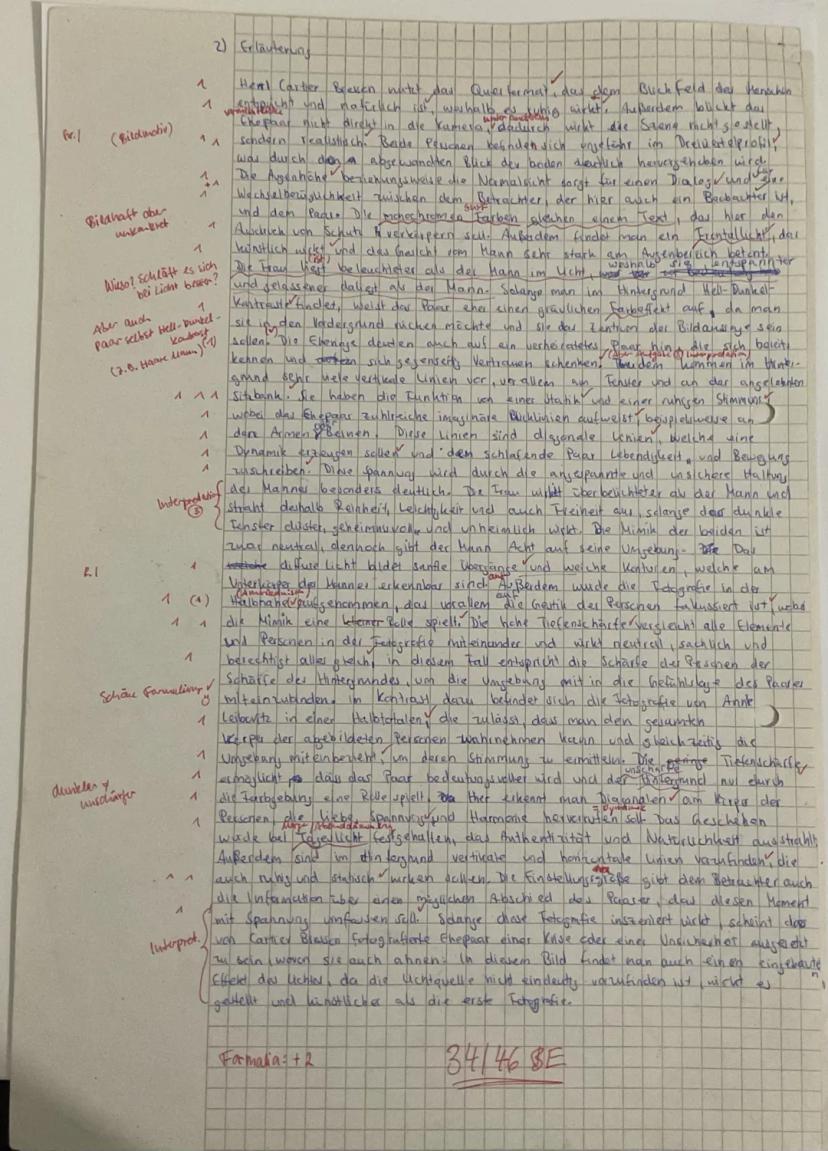 2) Erläuterung
Henri Cartier Bresson nutzt das Querformat, das dem Blickfeld des Menschen
entspricht und natürlich ist, weshalb es ruhig wirkt. Außerdem blickt das
Ehepaar nicht direkt in die Kamera, dadurch wirkt die Szene nicht gestellt,
Fr. 1 (Bildmotiv) sondern realistisch. Beide Personen befinden sich ungefähr im Dreiviertelprofil,
was durch den abgewandten Blick der beiden deutlich hervorgehoben wird.
Die Augenhöhe beziehungsweise die Normalsicht sorgt für einen Dialog und für eine
Wechselbezüglichkeit zwischen dem Betrachter, der hier auch ein Beobachter ist,
Bildhaft aber unkonkret
und dem Paar. Die monochromen Farben gleichen einem Text, das hier den
Ausdruck von Schutz verkörpern soll. Außerdem findet man ein Frontallicht, das
künstlich wirkt und das Gesicht vom Mann sehr stark am Augenbereich betont.
Wieso? Schläft es sich bei Licht besser?
Die Frau liegt beleuchteter als der Mann im Licht, weshalb sie entspannter
und gelassener daliegt als der Mann. Solange man im Hintergrund Hell-Dunkel-
Aber auch Paar selbst Hell-Dunkel-Kontrast (z.B. Haare Mann) (1)
Kontraste findet, weist das Paar eher einen gräulichen Farbeffekt auf, da man
sie in den Vordergrund rücken möchte und sie das Zentrum der Bildaussage sein
sollen. Die Eheringe deuten auch auf ein verheiratetes Paar hin, die sich bereits
kennen und sich gegenseitig Vertrauen schenken. Zudem kommen im Hinter-
grund sehr viele vertikale Linien vor, vor allem am Fenster und an der angelehnten
Sitzbank. Sie haben die Funktion von einer Statik und einer ruhigen Stimmung,
wobei das Ehepaar zahlreiche imaginäre Blicklinien aufweist, beispielsweise an
den Armen Beinen. Diese Linien sind diagonale Linien, welche eine
Dynamik erzeugen sollen und dem schlafende Paar Lebendigkeit und Bewegung
zuschreiben. Diese Spannung wird durch die angespannte und unsichere Haltung
Interpretation (3)
des Mannes besonders deutlich. Die Frau wirkt überbelichteter als der Mann und
strahlt deshalb Reinheit, Leichtigkeit und auch Freiheit aus, solange das dunkle
Fenster düster, geheimnisvoll und unheimlich wirkt. Die Mimik der beiden ist
zwar neutral, dennoch gibt der Mann Acht auf seine Umgebung. Das
2.1
diffuse Licht bildet sanfte Übergänge und weiche Konturen, welche am
Unterkörper des Mannes erkennbar sind. Außerdem wurde die Fotografie in der
Halbnahe aufgenommen, das vor allem auf die Gestik der Personen fokussiert ist, wobei
die Mimik eine kleinere Rolle spielt. Die hohe Tiefenschärfe vergleicht alle Elemente
und Personen in der Fotografie miteinander und wirkt neutral, sachlich und
berechtigt alles gleich, in diesem Fall entspricht die Schärfe der Personen der
Schärfe des Hintergrundes, um die Umgebung mit in die Gefühlslage des Paares
Schöne Formulierung
miteinzubinden. Im Kontrast dazu befindet sich die Fotografie von Annie
Leibovitz in einer Halbtotalen, die zulässt, dass man den gesamten
Körper der abgebildeten Personen wahrnehmen kann und gleichzeitig die
Umgebung miteinbezieht, um deren Stimmung zu ermitteln. Die geringe Tiefenschärfe
unschärfe
ermöglicht, dass das Paar bedeutungsvoller wird und der Hintergrund nur durch
dunkler + unschärfer
die Farbgebung eine Rolle spielt. Hier erkennt man Diagonalen am Körper der
= Dynamik
Personen, die Liebe, Spannung und Harmonie hervorrufen soll. Das Geschehen
wurde bei Tageslicht festgehalten, das Authentizität und Natürlichkeit ausstrahlt.
Außerdem sind im Hintergrund vertikale und horizontale Linien vorzufinden, die
auch ruhig und statisch wirken sollen. Die Einstellungsgröße gibt dem Betrachter auch
die Information über einen möglichen Abschied des Paares, das diesen Moment
mit Spannung umfassen soll. Solange diese Fotografie inszeniert wirkt, scheint das
Interpret.
von Cartier Bresson fotografierte Ehepaar einer Krise oder einer Unsicherheit ausgesetzt
zu sein, wovon sie auch ahnen. In diesem Bild findet man auch einen eingebauten
Effekt des Lichtes, da die Lichtquelle nicht eindeutig vorzufinden ist, wirkt es
gestellt und künstlicher als die erste Fotografie.
Formalia: +2 34/46 BE